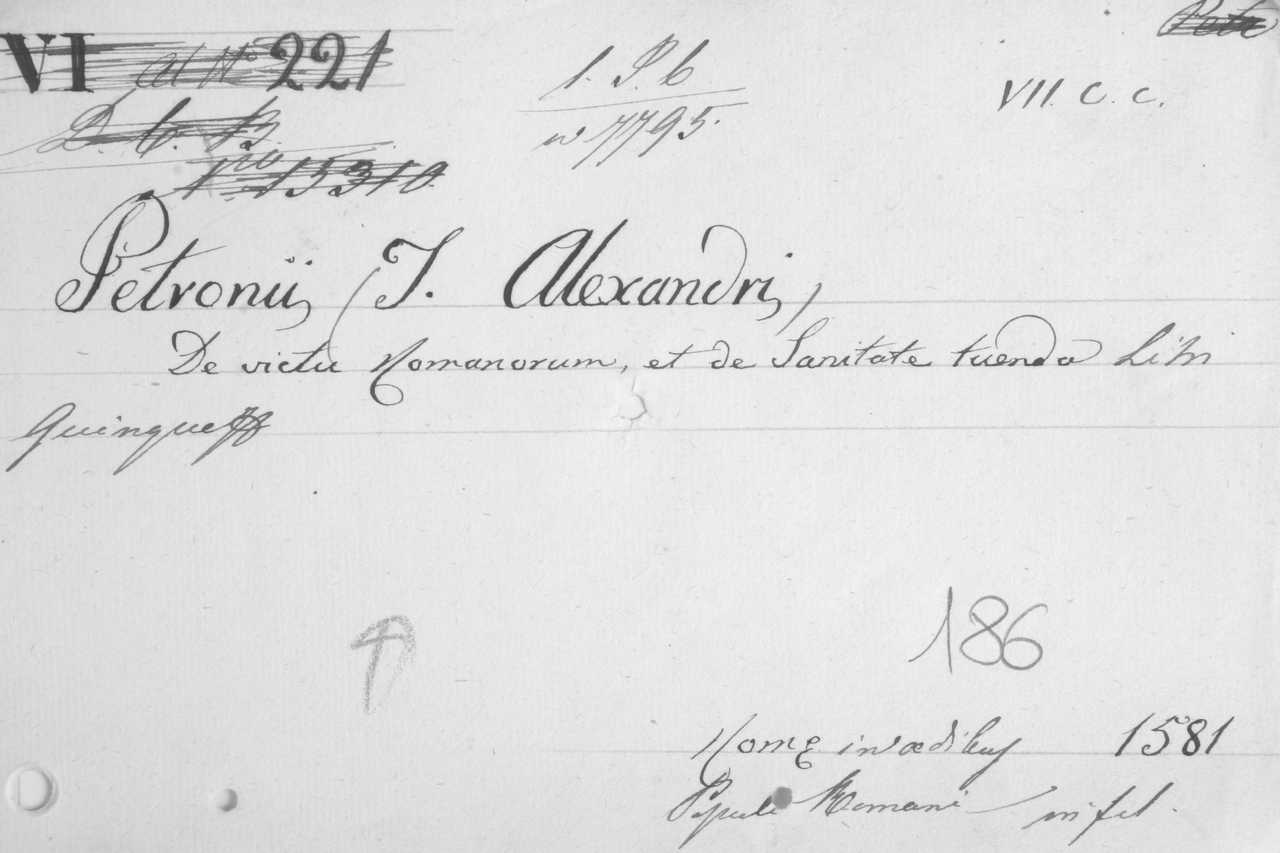 Petr
VI ad No 221
1. P. b
VII. C. C.
D. b. B.
n 7795.
1 no 15310
Petronii, (J. Alexandri,)
De victu Romanorum, et de Sanitate tuenda Libri
quinque
186
Romę in ædibus 1581
Populi Romani in fol.